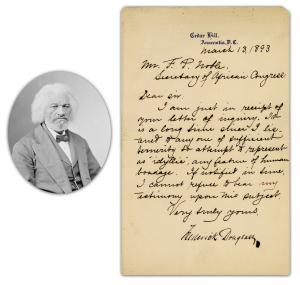 Cedar Hill,
Anacostia, D.C.
March 13, 1893
Mr. F. P. Noble,
Secretary of African Congress
Dear sir.
I am just in receipt of
your letter of inquiry. It
is a long time since I
and any one of sufficient
temerity to attempt to represent
as idyllic any feature of human
bondage. If notified in time,
I cannot refuse to bear my
testimony upon this subject.
Very truly yours,
Frederick Douglass